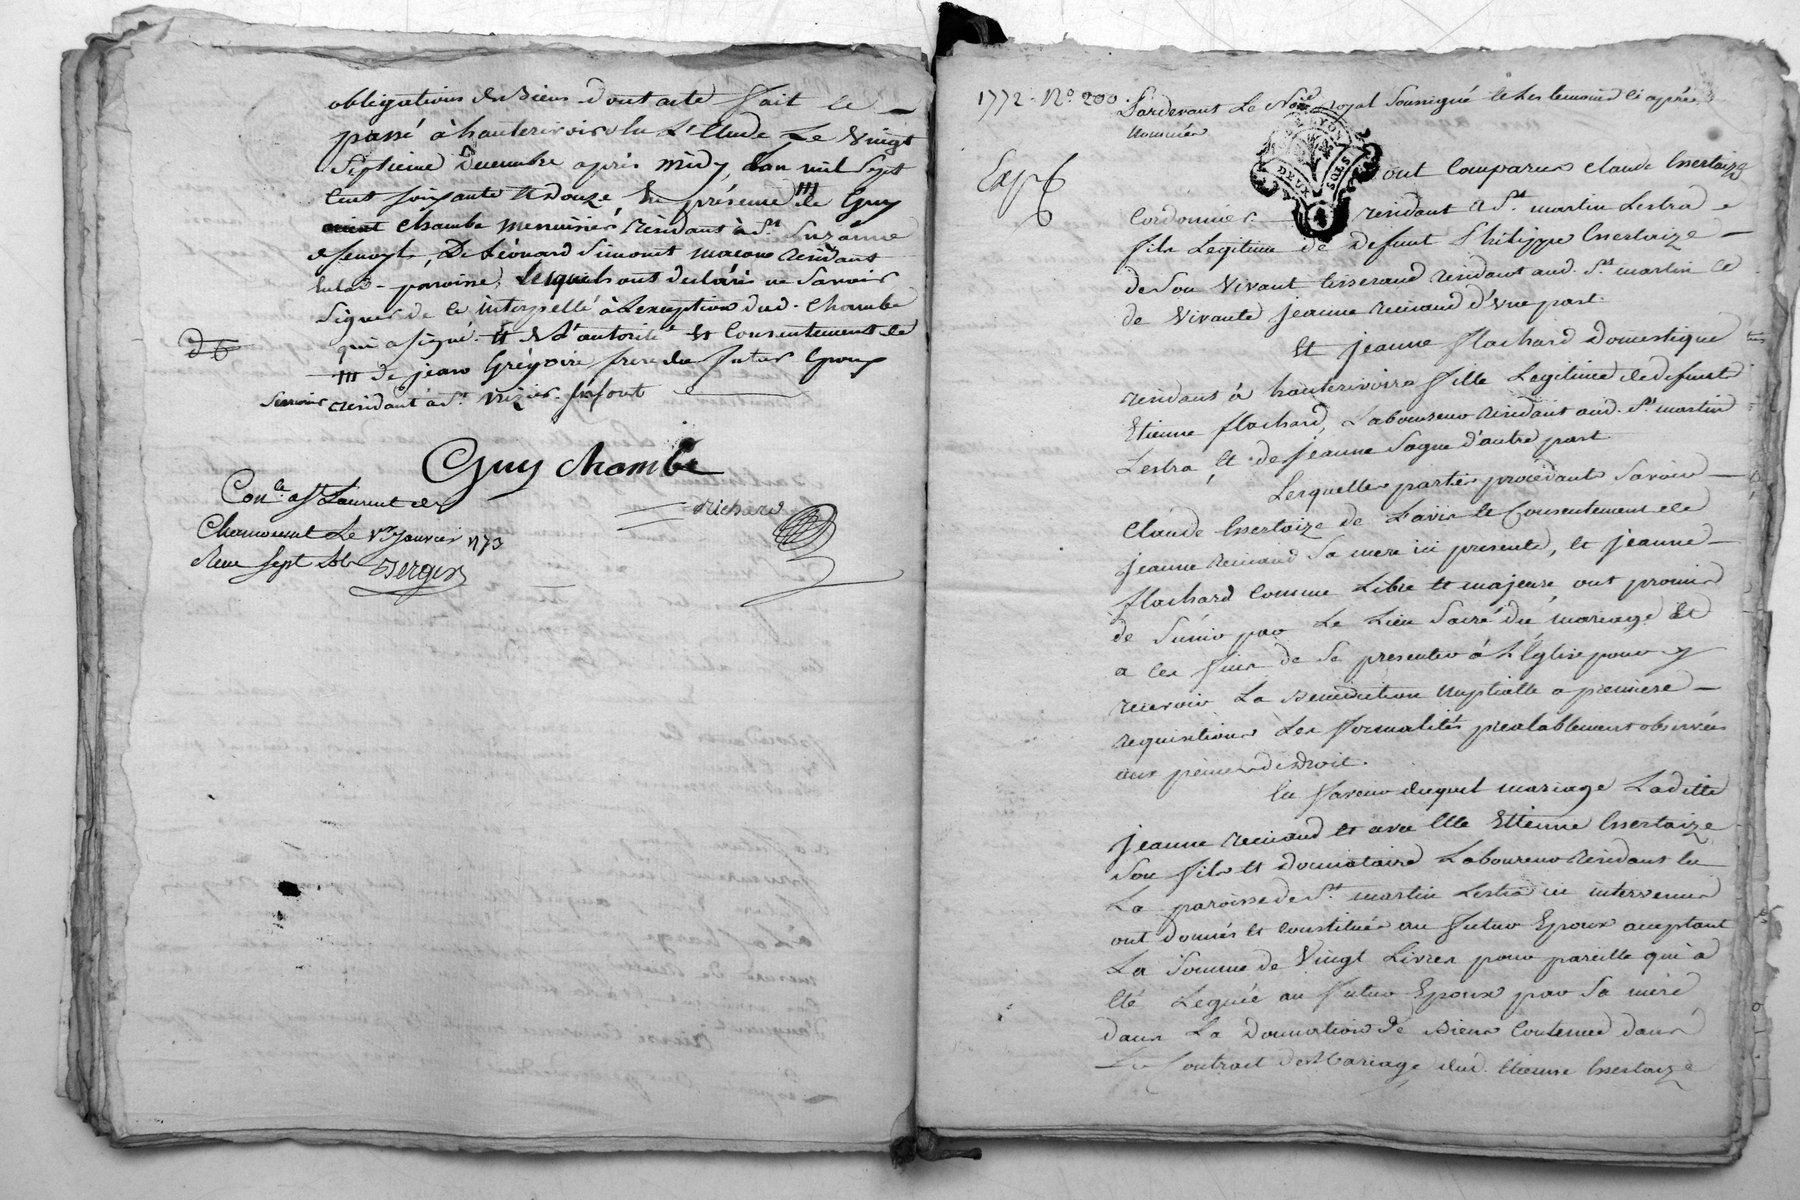 obligations des Biens dont acte fait et
passé à hauterivoire lu L'Etude Le Vingt
Septieme Decembre après midy, Lan mil Sept
Cent soixante et douze En présence de Guy
chambe menuisier résidant à St Suzanne
, De Léonard Simonet maçon résidant
paroisse, Lesquels ont déclarés ne Savoir
signer de ce interpellé à L'exception dud. Chambe
qui a signé. Et de L'autorité et Consentement de
de jean Grégoire frere du futur Epoux
résidant à St.
Guy chambe
Richard
Con.lé a St Laurent de
Chamousset Le Janvier 1773
Reçu sept
1772. No. 200.
Pardevant Le Nore. royal Soussigné et les temoins ci après
nommés
DEUX SOLS
4
Exp
ont Comparus Claude Essertaize
Cordonnier résidant à St. martin Lestra
fils Legitime de defunt Philippe Essertaize
de Son Vivant tisserand résidant aud. St. martin et
de Vivante jeanne Renaud d'Une part.
Et jeanne flachard Domestique
résidant à hauterivoire fille Legitime de defunt
Etienne flachard, Laboureur résidant aud. St. martin
Lestra, Et de jeanne Sagne d'autre part
Lesquelles parties procédant Savoir
Claude Essertaize de L'avis et Consentement de
jeanne Renaud Sa mere ici presente, et jeanne
flachard Comme Libre et majeure, ont promis
de S'unir par Le Lien Sacré du mariage Et
a ces fins de Se presenter à L'Eglise pour y
recevoir La Benediction Nuptialle a premiere
requisition Les formalités prealablement observées
aux peines de Droit.
En faveur duquel mariage Laditte
jeanne Renaud et avec Elle Etienne Essertaize
Son fils et Donnataire Laboureur résidant en
La paroisse de St. martin Lestra ici intervenu
ont donnés et Constitués au futur Epoux acceptant
La Somme de Vingt Livres pour pareille qui a
Eté Leguée au futur Epoux par Sa mere
dans La Donnation de Biens Contenue dans
Le Contrat de Mariage dud. Etienne Essertaize